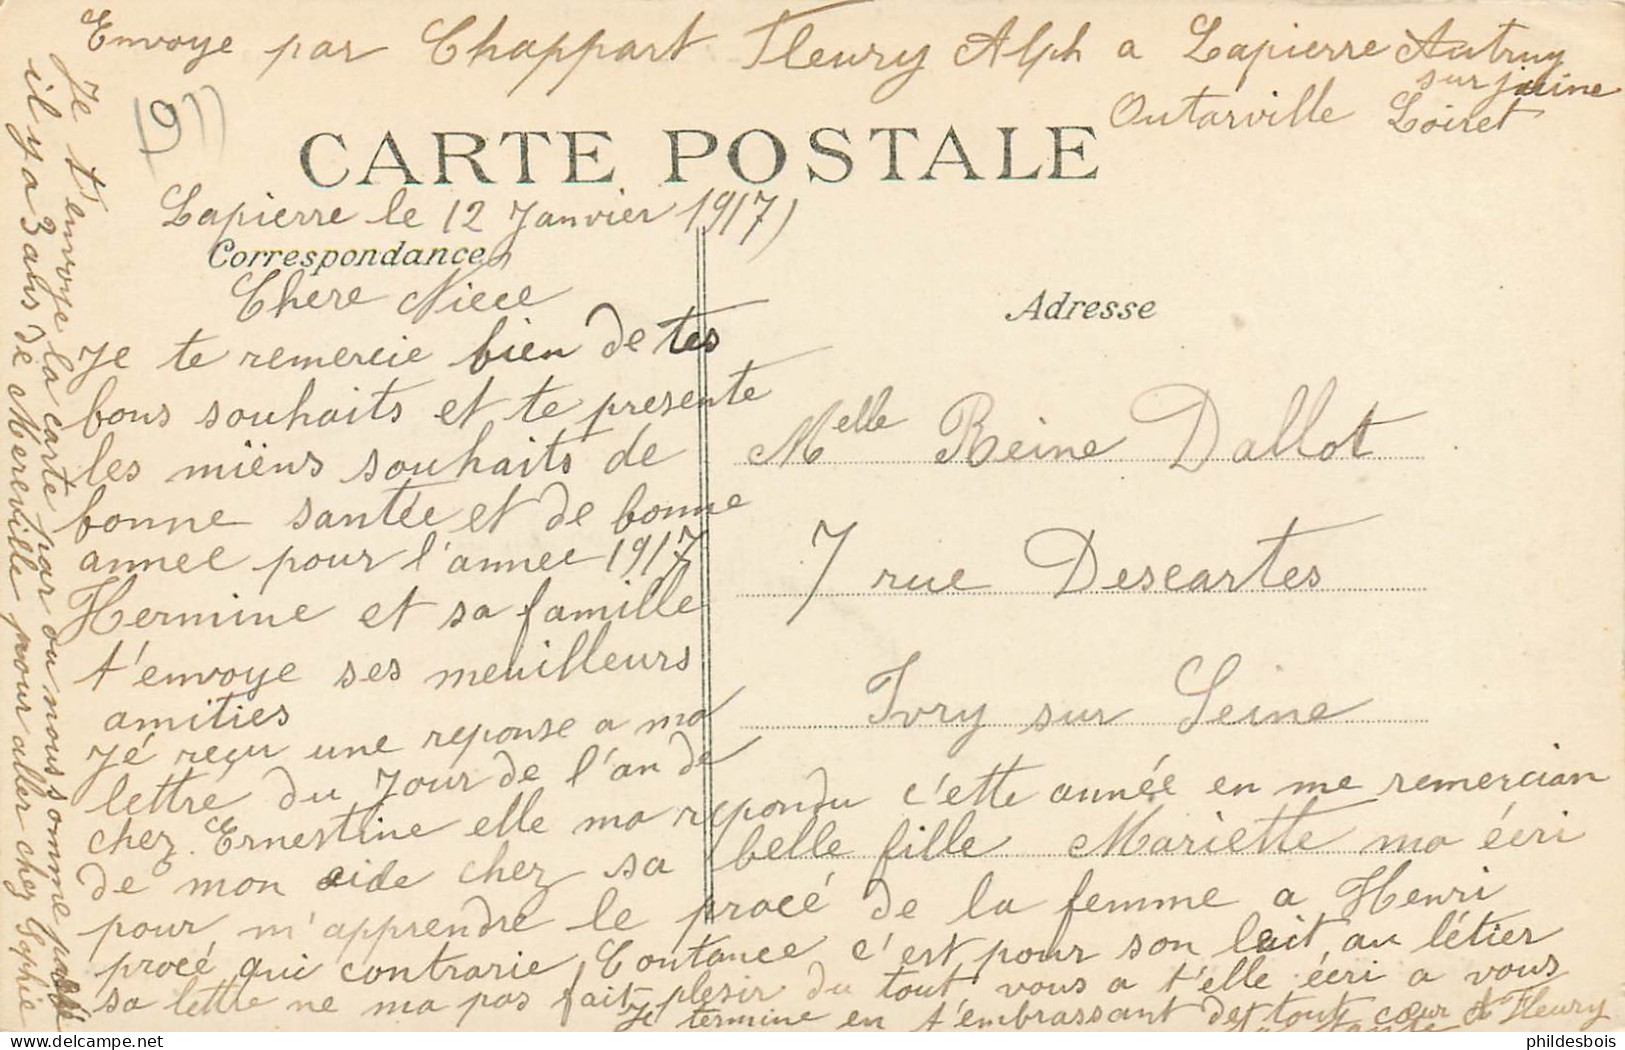 Envoye par Chappart Fleury Alph a Lapierre Autruy
sur juine
Outarville Loiret
1917
CARTE POSTALE
Lapierre le 12 Janvier 1917
Correspondance
Adresse
Chere Niece
Je te remercie bien de tes
bons souhaits et te presente
les miens souhaits de
bonne santée et de bonne
annee pour l'annee 1917
Hermine et sa famille
t'envoye ses meuilleurs
amities
Jé reçu une reponse a ma
lettre du Jour de l'an de
chez Ernestine elle ma repondu c'ette année en me remercian
de mon aide chez sa belle fille Mariette ma écri
pour m'apprendre le procé de la femme a Henri
procé qui contrarie Coutance c'est pour son lait au létier
sa lettre ne ma pas fait plesir du tout vous a t'elle écri a vous
Je termine en t'embrassant de tout cœur A Fleury
Melle Reine Dallot
7 rue Descartes
Ivry sur Seine
Je t'envoye la carte par ou nous somme passé
il y a 3 ans de Mereville pour aller chez Sophie
philedesbois